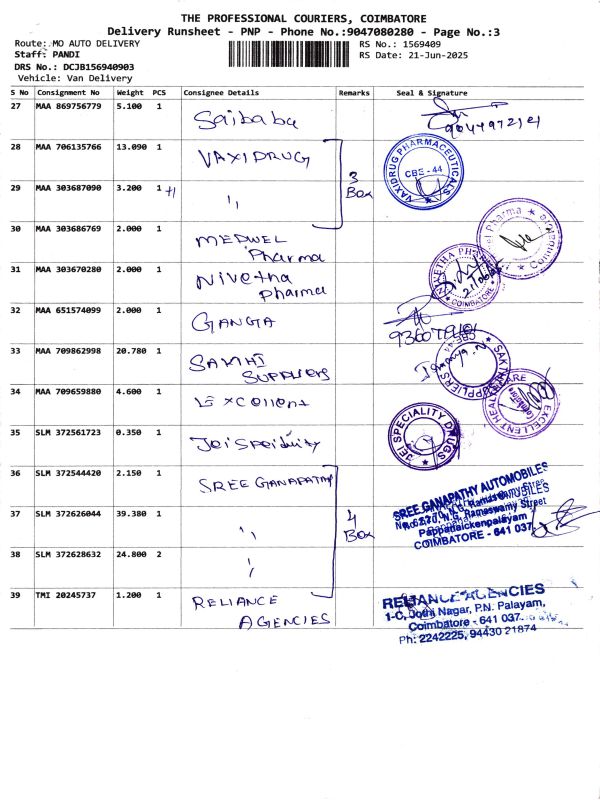 THE PROFESSIONAL COURIERS, COIMBATORE
Delivery Runsheet - PNP - Phone No.:9047080280 - Page No.:3
Route: MO AUTO DELIVERY
RS No.: 1569409
Staff: PANDI
RS Date: 21-Jun-2025
DRS No.: DCJB156940903
Vehicle: Van Delivery
S No Consignment No Weight PCS Consignee Details Remarks Seal & Signature
27 MAA 869756779 5.100 1 Saibaba
28 MAA 706135766 13.090 1 VAXIDRUG
VAXIDRUG PHARMACEUTICALS CBE-44
3 Box
29 MAA 303687090 3.200 1 ,,
30 MAA 303686769 2.000 1 MEDWEL Pharma
31 MAA 303670280 2.000 1 Nivetha Pharma
NIVETHA PHARMA COIMBATORE
32 MAA 651574099 2.000 1 GANGA
33 MAA 709862998 20.780 1 SAKHI SUPPLIERS
34 MAA 709659880 4.600 1 Excellent
EXCELLENT HEALTHCARE
35 SLM 372561723 0.350 1
JEI SPECIALITY DRUGS
36 SLM 372544420 2.150 1 SREE GANAPATHY
SREE GANAPATHY AUTOMOBILES
N.G. Ramaswamy Street
Pappanaickenpalayam
COIMBATORE - 641 037
37 SLM 372626044 39.380 1 ,,
4 Box
38 SLM 372628632 24.800 2
39 TMI 20245737 1.200 1 RELIANCE AGENCIES
RELIANCE AGENCIES
1-C, Jothi Nagar, P.N. Palayam,
Coimbatore - 641 037
Ph: 2242225, 94430 21874